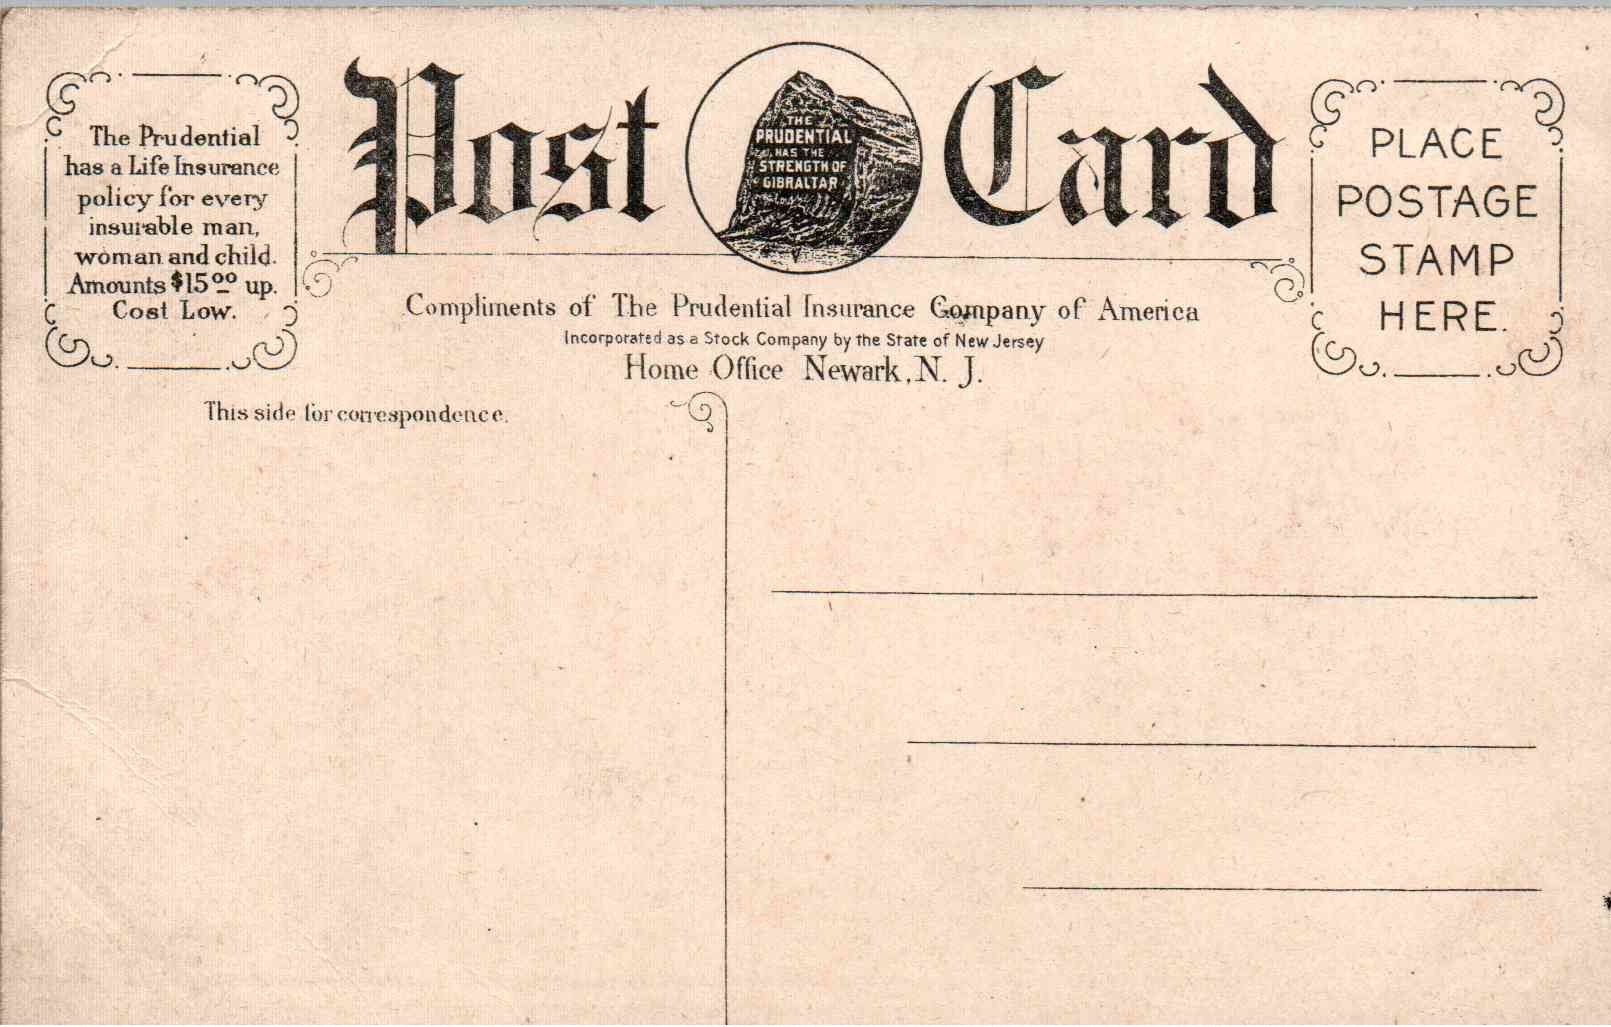 The Prudential
has a Life Insurance
policy for every
insurable man,
woman and child.
Amounts $15.00 up.
Cost Low.
Post Card
THE
PRUDENTIAL
HAS THE
STRENGTH OF
GIBRALTAR
PLACE
POSTAGE
STAMP
HERE.
Compliments of The Prudential Insurance Company of America
Incorporated as a Stock Company by the State of New Jersey
Home Office Newark, N. J.
This side for correspondence.